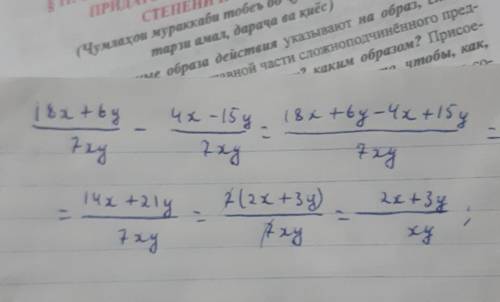 ПРИДАТО
СТЕПЕНИ
(Чумлаҳои мураккаби тобеъ бо
тарзи амал, дараҷа ва қиёс)
ные образа действия указывают на образ,
авной части сложноподчинённого пред-
каким образом? Присое-
чтобы, как,
18x + 6y / 7xy - 4x - 15y / 7xy = 18x + 6y - 4x + 15y / 7xy =
= 14x + 21y / 7xy = 7(2x + 3y) / 7xy = 2x + 3y / xy ;